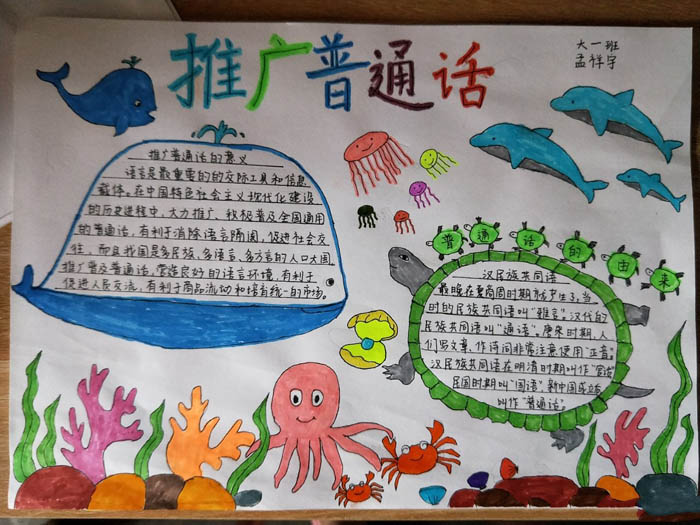 推广普通话
大一班
孟祥宇
推广普通话的意义
语言是最重要的的交际工具和信息
载体。在中国特色社会主义现代化建设
的历史进程中，大力推广、积极普及全国通用
的普通话，有利于消除语言隔阂，促进社会交
往，而且我国是多民族、多语言、多方言的人口大国，
推广普及普通话，营造良好的语言环境，有利于
促进人民交流，有利于商品流动和培育统一的市场。
普通话的由来
汉民族共同语
最晚在夏商周时期就产生了，当
时的民族共同语叫“雅言”。汉代的
民族共同语叫“通语”。唐宋时期，人
们写文章、作诗词非常注意使用“正音”。
汉民族共同语在明清时期叫作“官话”
民国时期叫“国语”，新中国成立后
叫作“普通话”。